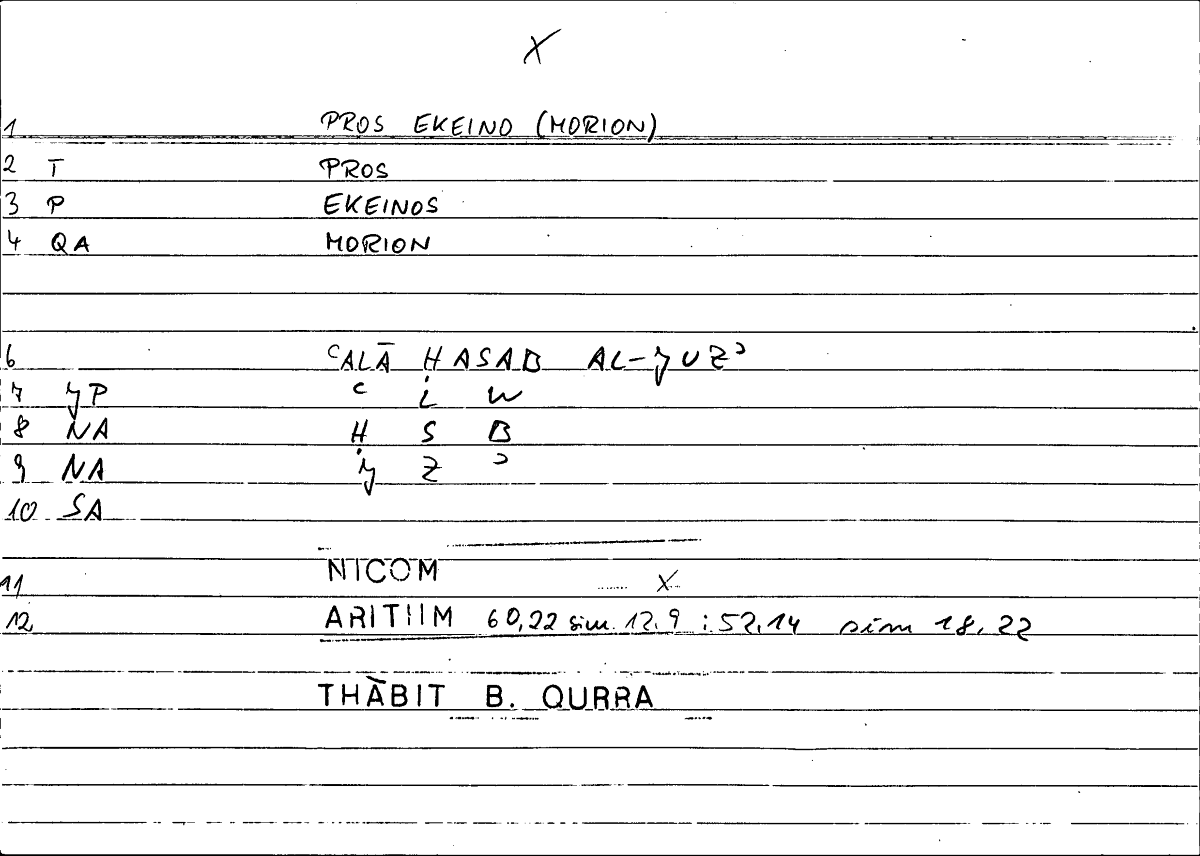 X
1 PROS EKEINO (MORION)
2 T PROS
3 P EKEINOS
4 QA MORION
6 ʿALĀ ḤASAB AL-JUZʾ
7 JP ʿ L W
8 NA Ḥ S B
9 NA J Z ʾ
10 SA
NICOM
11 X
12 ARITHM 60,22 sim. 12.9 ; 52,14 sim 18,22
THĀBIT B. QURRA